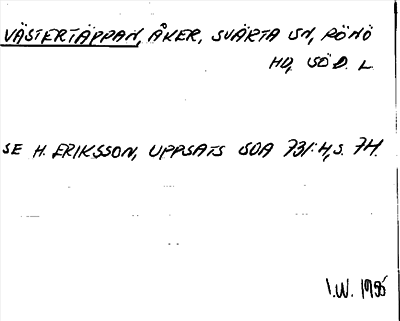 VÄSTERTÄPPAN, ÅKER, SVÄRTA SN, RÖNÖ
HD, SÖD. L.
SE H. ERIKSSON, UPPSATS SOA 731:4, S. 74.
I.W. 1985